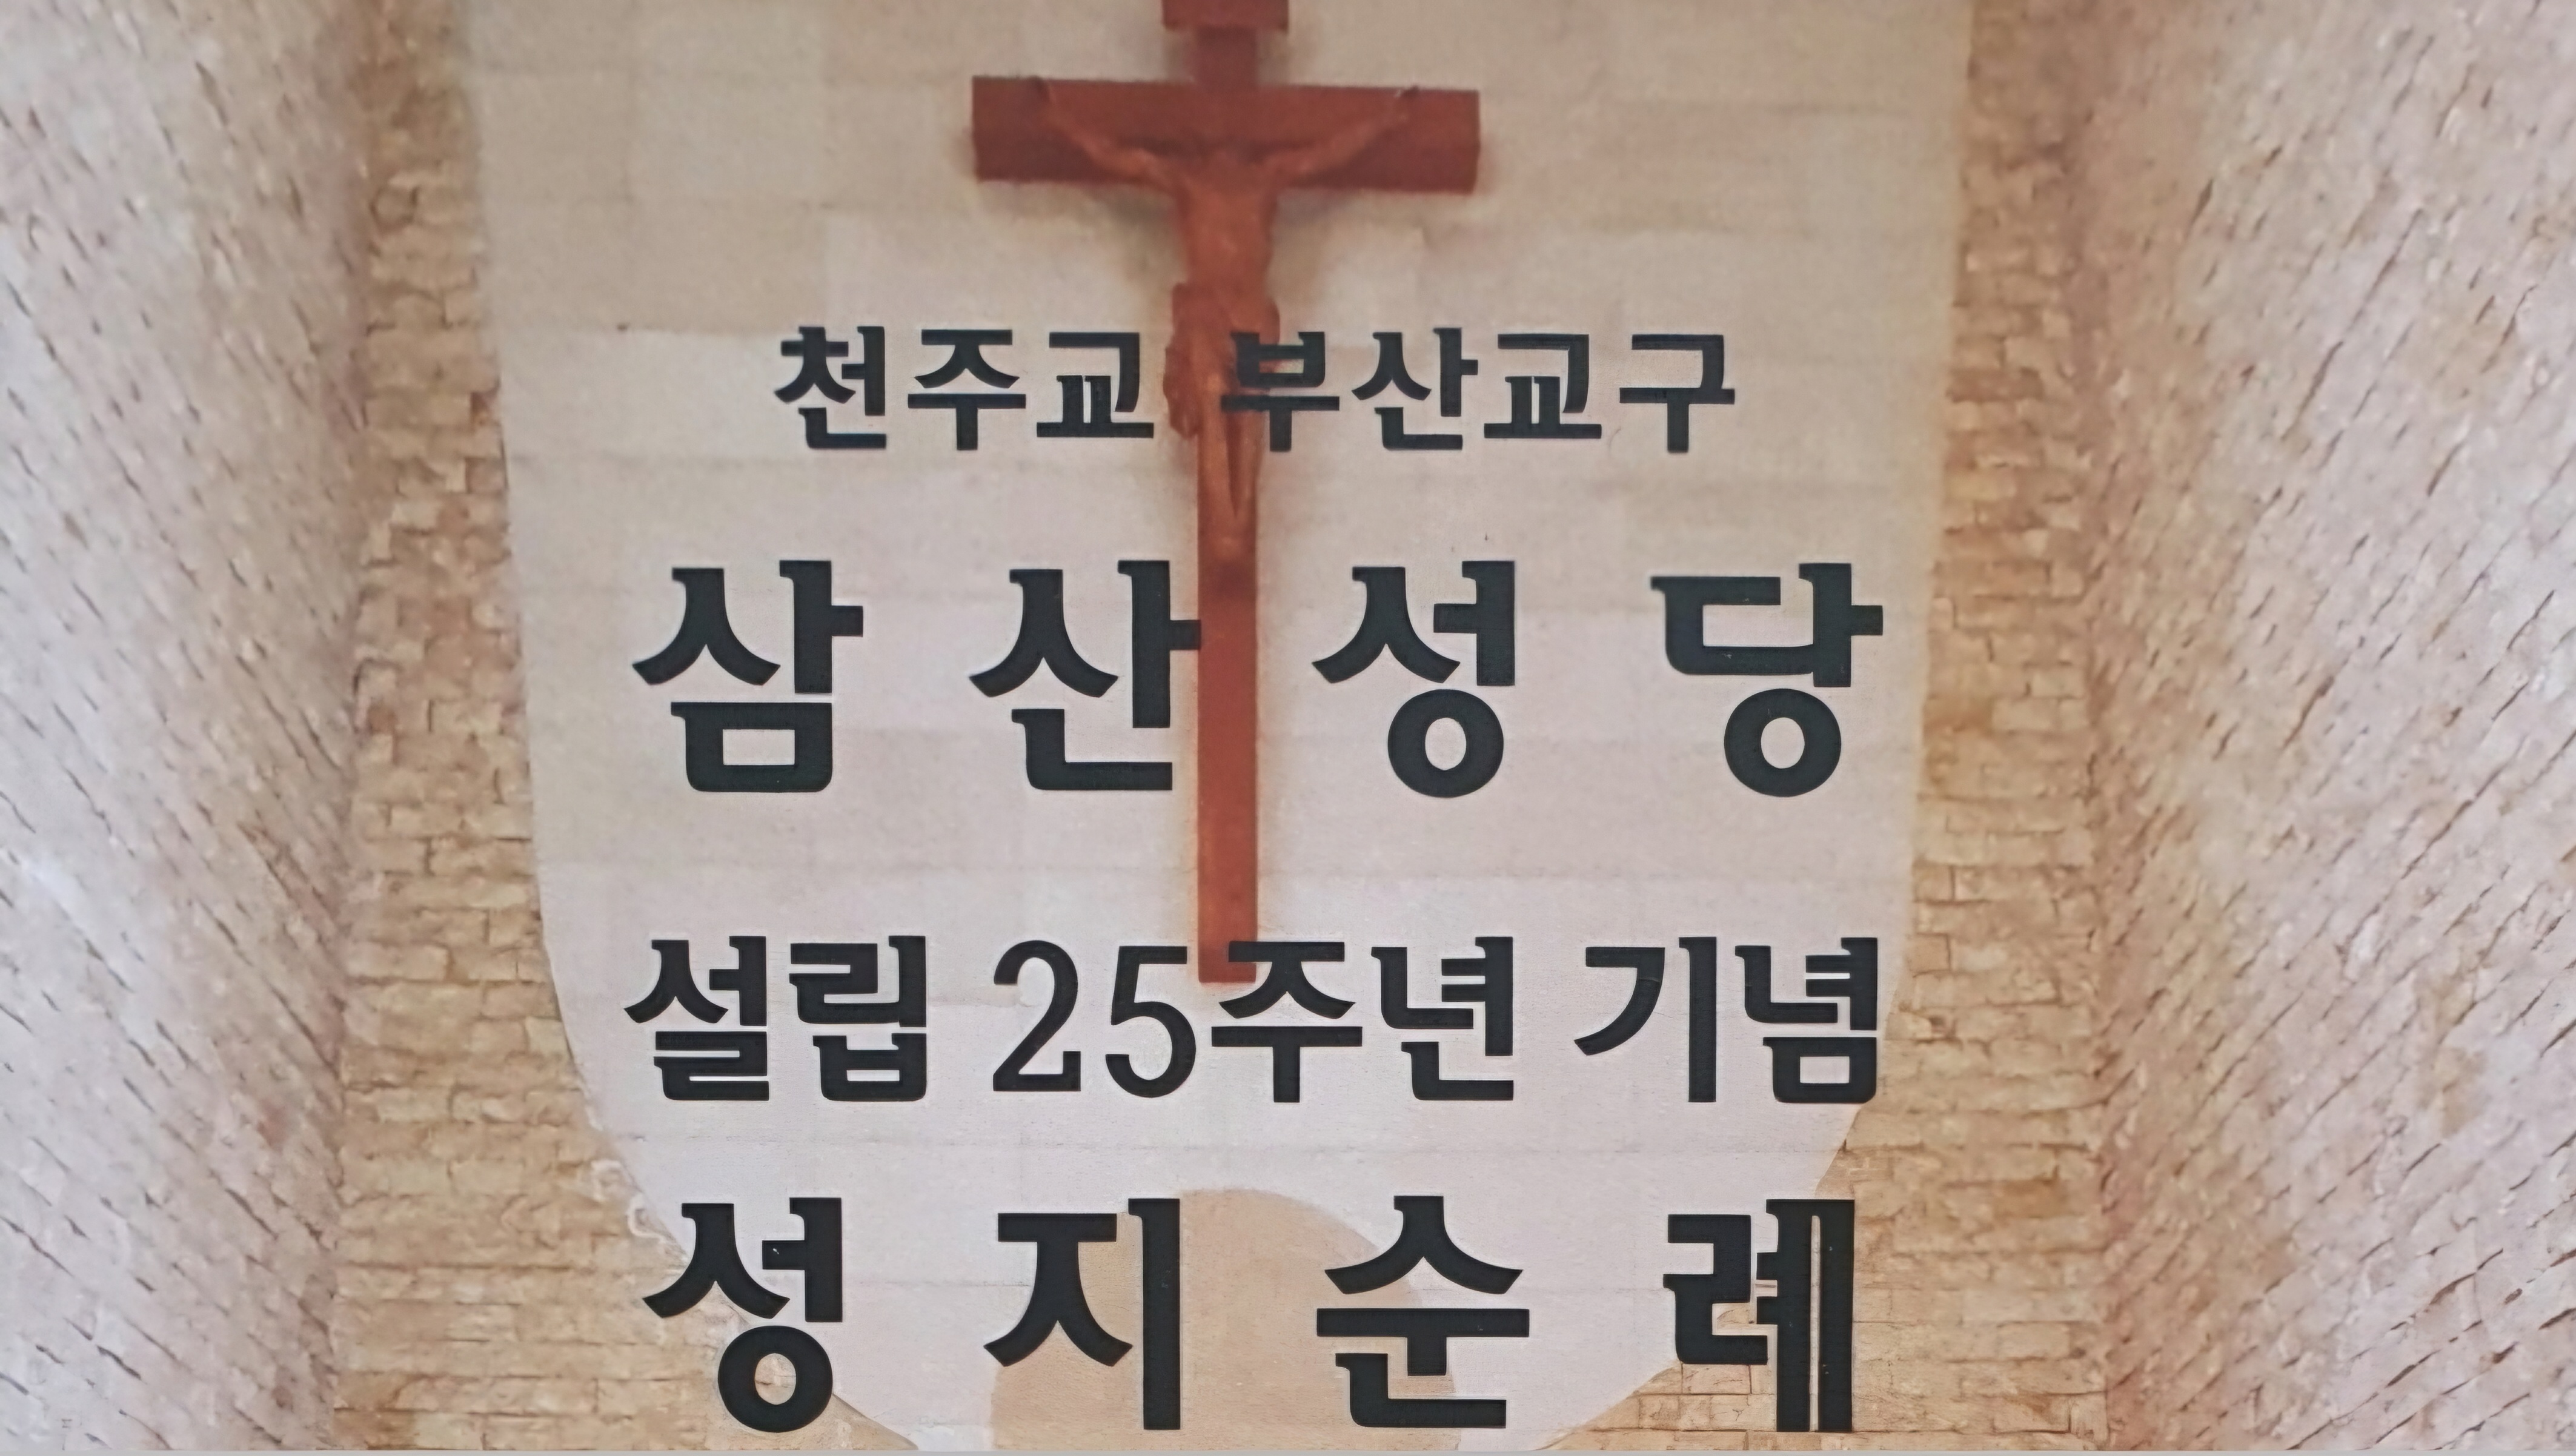 천주교 부산교구
삼산성당
설립 25주년 기념
성지순례